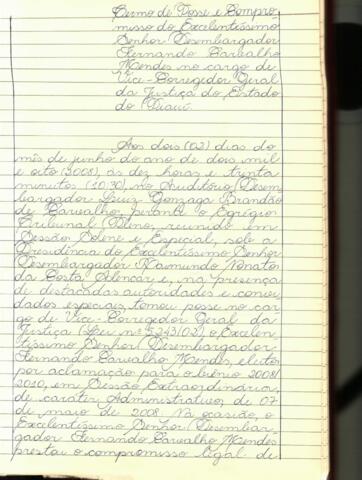 Termo de Posse e Compro-
misso do Excelentíssimo
Senhor Desembargador
Fernando Carvalho
Mendes no cargo de
Vice-Corregedor Geral
da Justiça do Estado
do Piauí.
Aos dois (02) dias do
mês de junho do ano de dois mil
e oito (2008), às dez horas e trinta
minutos (10:30), no Auditório Desem-
bargador Luiz Gonzaga Brandão
de Carvalho, perante o Egrégio
Tribunal Pleno, reunido em
Sessão Solene e Especial, sob a
Presidência do Excelentíssimo Senhor
Desembargador Raimundo Nonato
da Costa Alencar e, na presença
de destacadas autoridades e convi-
dados especiais, tomou posse no car-
go de Vice-Corregedor Geral da
Justiça (Lei nº 5243/02) o Excelen-
tíssimo Senhor Desembargador
Fernando Carvalho Mendes, eleito
por aclamação para o biênio 2008/
2010, em Sessão Extraordinária,
de caráter Administrativo, de 07
de maio de 2008. Na ocasião, o
Excelentíssimo Senhor Desembar-
gador Fernando Carvalho Mendes
prestou o compromisso legal de